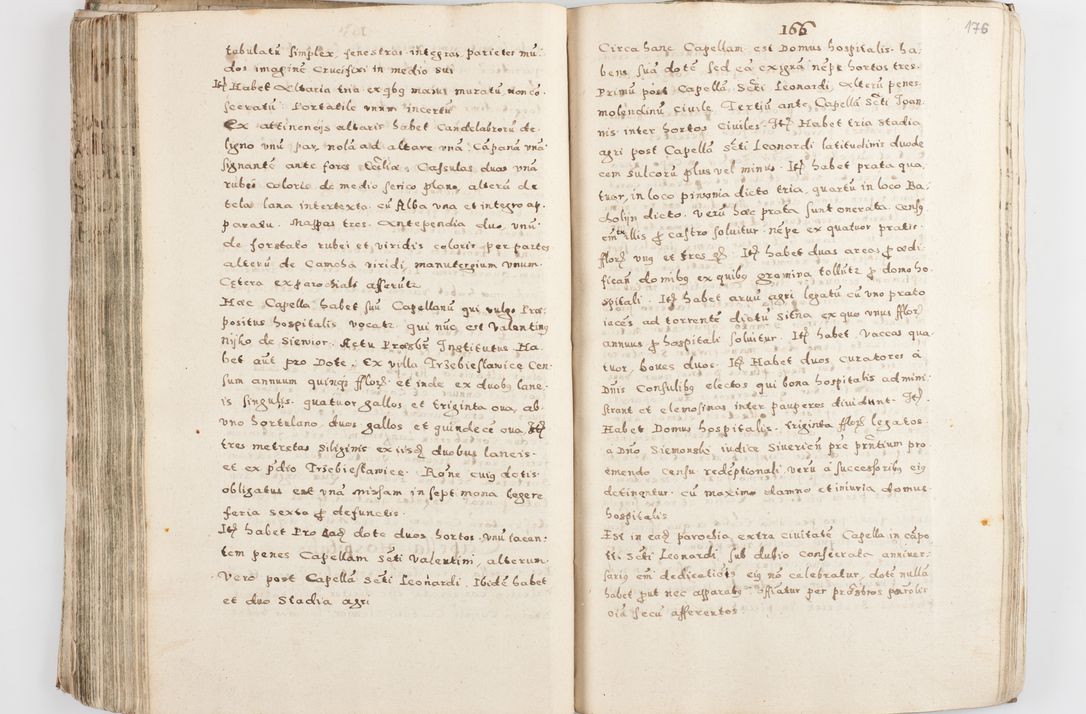 tabulatū simplex, fenestras integras parietes nu,
dos imaginē Crucifixi in medio sui
Itē Habet Altaria tria ex qbȝ maius muratū non cō,
secratū. Portatile vnum incertū
Ex attinencijs altaris habet Candelabrorū de
ligno vnū par, nolā ad altare vnā. Cāpanā vnā
signantē ante fores Ecclīæ. Casulas duas vnā
rubei coloris de medio serico plano, alterā de
tela lana intertexta. cū Alba vna et integro ap,
paratu. Mappas tres. Antependia duo, vnū
de forstato rubei et viridis coloris per partes
alterū de Camcha viridi, manutergium vnum.
Cętera ex parochiali afferūtr
Hæc Capella habet suū Capellanū qui vulgo Præ,
positus hospitalis vocatr. qui nūc est Valentinȝ
Nijko de Siewior. Actu Præsbr Institutus Ha,
bet aūt pro Dote. Ex villa Trzebieslawice Cen,
sum annuum quinqȝ fflorȝ et inde ex duobȝ lane,
is singulis quatuor gallos et triginta oua, ab
vno hortulano duos gallos et quindecē oua Itē
tres metretas siliginis ex ijsdȝ duobus laneis.
et ex pdio Trzebieslawice. Rōne cuiȝ dotis
obligatus est vnā missam in septimona legere
feria sexta p defunctis.
Itē habet Pro eadȝ dote duos hortos. vnū iacen,
tem penes Capellam Scti Valentini, alterum
vero post Capellā Scti Leonardi. Ibidē habet
et duo Stadia agri
166
176
Circa hanc Capellam est Domus hospitalis ha,
bens suā dotē sed eā exiguā nēpe hortos tres.
Primū post Capellā Scti Leonardi Alterū penes
molendinū ciuile Tertiū ante Capellā Scti Joan,
nis inter hortos Ciuiles. Itē Habet tria stadia
agri post Capellā Scti Leonardi latitudinis duode
cem sulcorū plus vel minus. Itē habet prata qua,
tuor, in loco pinsonia dicto tria, quartū in loco Ba,
cholijn dicto. Verū hæc prata sunt onerata. Censȝ
em ex illis p castro soluitur. nēpe ex quatuor pratis
fflorȝ vnȝ et tres gȝ. Itē habet duas areas p ædi,
ficań domibȝ ex quibȝ gramina tollūtr p domo ho,
spitali. Itē habet aruū agri legatū cū vno prato
iacēs ad torrentē dictū Sitna ex quo vnus fflorȝ
annuus p hospitali soluitur. Itē habet Vaccas qua,
tuor, boues duos. Itē Habet duos curatores à
Dnis Consulibȝ electos qui bona hospitalis admini,
strant et elemosinas inter pauperes diuidunt. Itē
Habet Domus hospitalis triginta fflorȝ legatos
a Dńo Siemonski iudice Siuerień præ prntium pro
emendo censu redēptionali verū à successoribȝ eiȝ
detinentur. cū maximo damno et iniuria domus
hospitalis
Est in eadȝ parochia, extra ciuitatē Capella in cāpo
tti. Scti Leonardi sub dubio consecrata anniuer,
sariȝ em dedicatiōis eiȝ nō celebratur, dotē nullā
habet put nec apparatȝ. Officiatur per præsbros parōles
oīa secū afferentes.